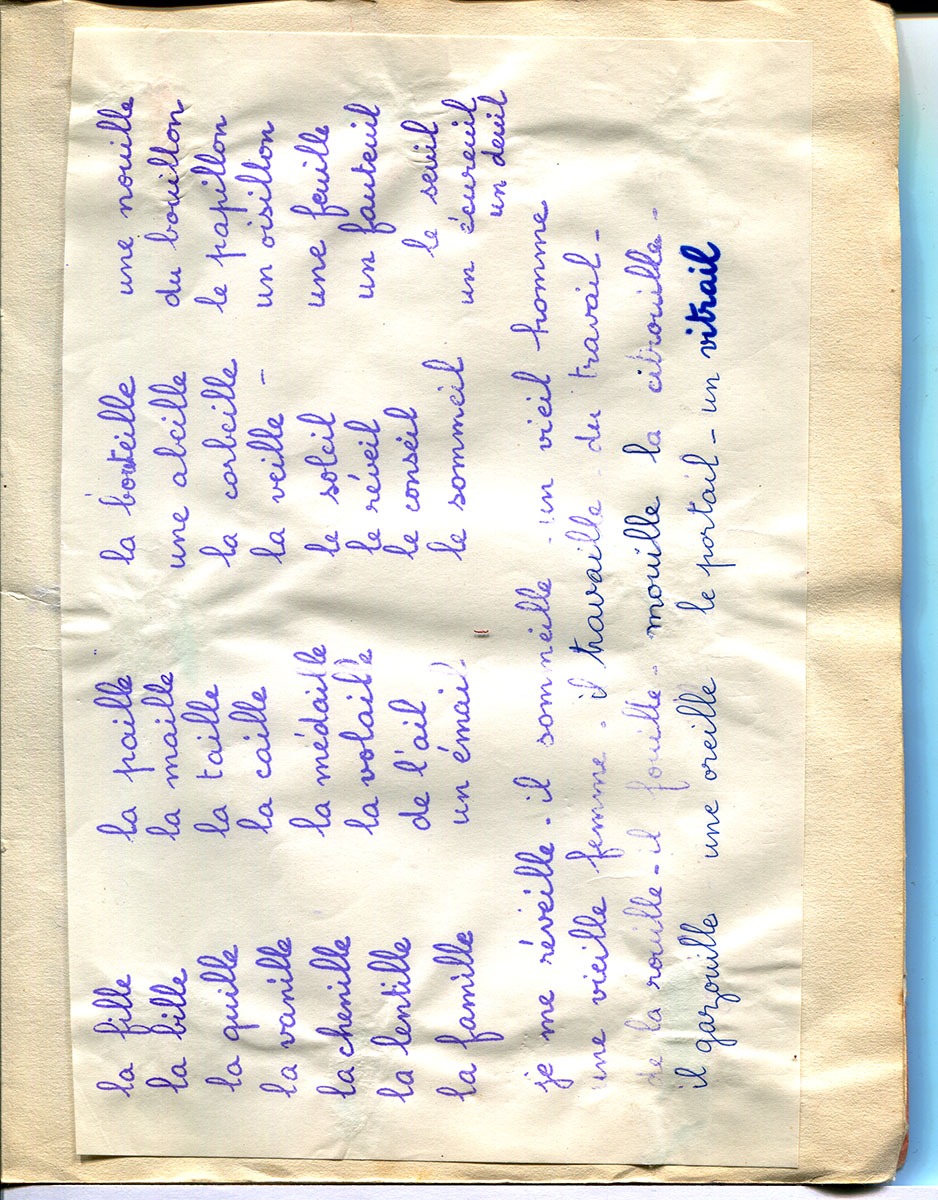 la fille
la bille
la quille
la vanille
la chenille
la lentille
la famille
la paille
la maille
la taille
la caille
la médaille
la volaille
de l'ail
un émail
la bouteille
une abeille
la corbeille
la veille -
le soleil
le réveil
le conseil
le sommeil
une nouille
du bouillon
le papillon
un oisillon
une feuille
un fauteuil
le seuil
un écureuil
un deuil
je me réveille - il sommeille un vieil homme
une vieille femme. il travaille - du travail -
de la rouille - il fouille - mouille la citrouille -
il gazouille une oreille le portail - un vitrail